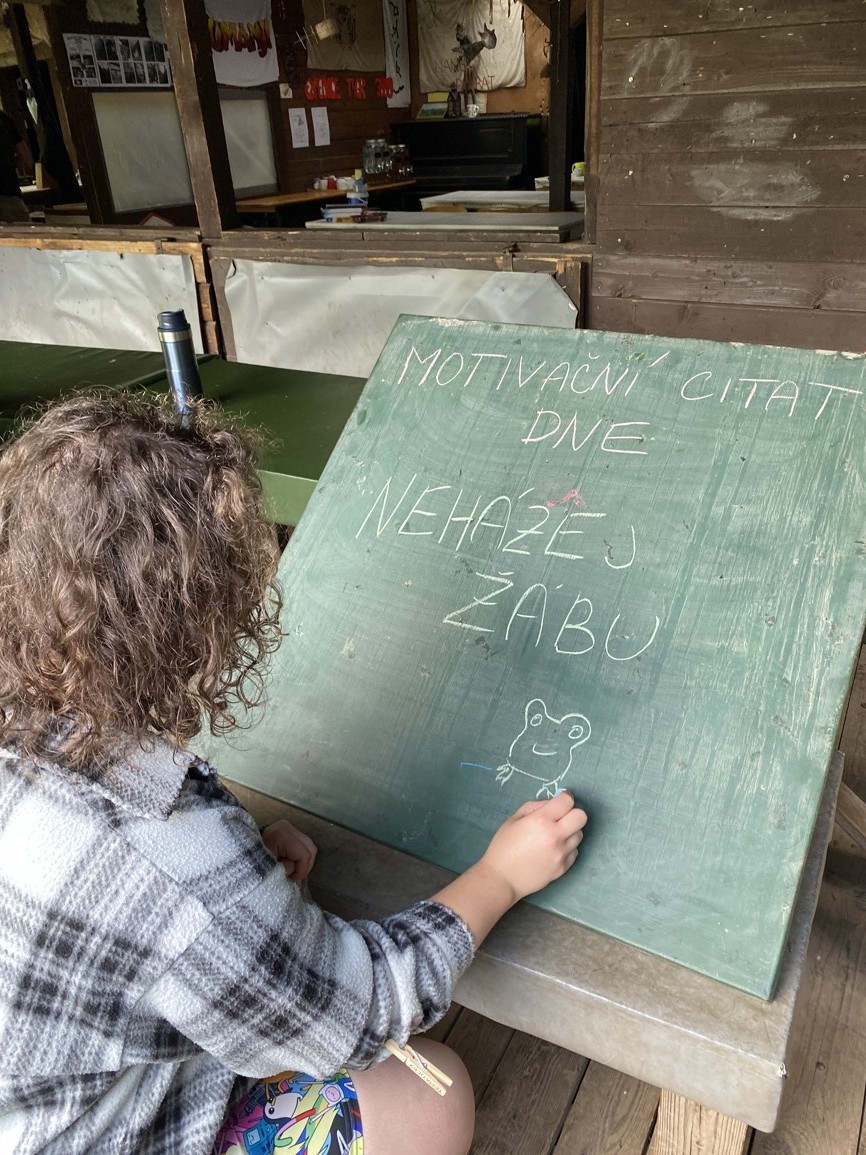 MOTIVAČNÍ CITAT
DNE
NEHÁŽEJ
ŽÁBU